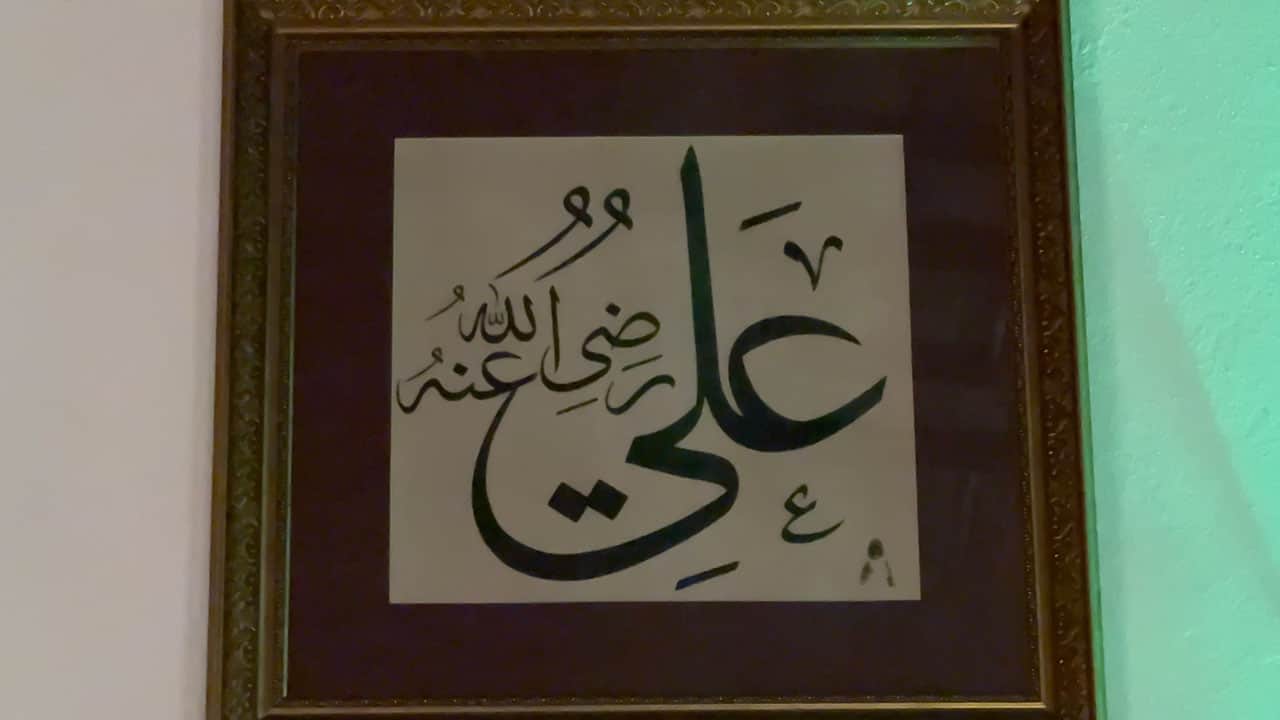 عَلِيٌّ
رَضِيَ اللهُ عَنهُ